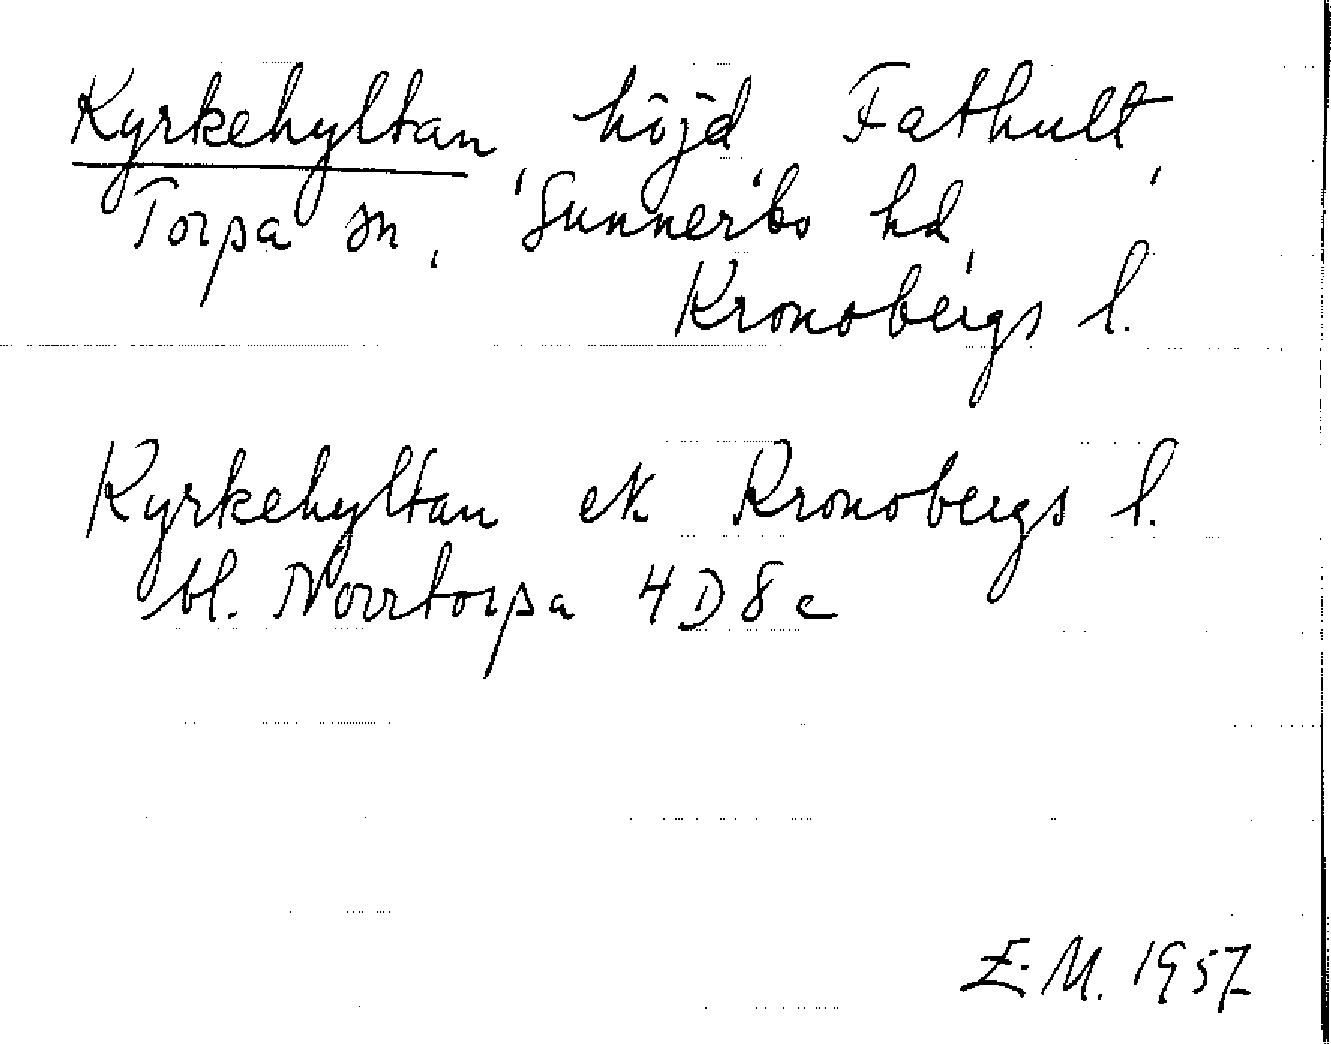 Kyrkehyltan, höjd Fathult,
Torpa sn, Sunnerbo hd,
Kronobergs l.
Kyrkehyltan ek Kronobergs l.
bl. Norrtorpa 4D8c
E.M. 1957